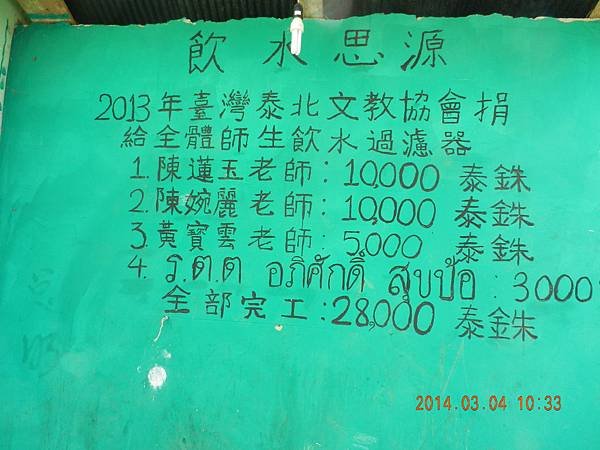 飲水思源
2013年臺灣泰北文教協會捐
給全體師生飲水過濾器
1. 陳蓮玉老師：10,000 泰銖
2. 陳婉麗老師：10,000 泰銖
3. 黃寶雲老師：5,000 泰銖
4. ร.ต.ต อภิศักดิ์ สุขป้อ : 3000
全部完工：28,000 泰銖
2014.03.04 10:33